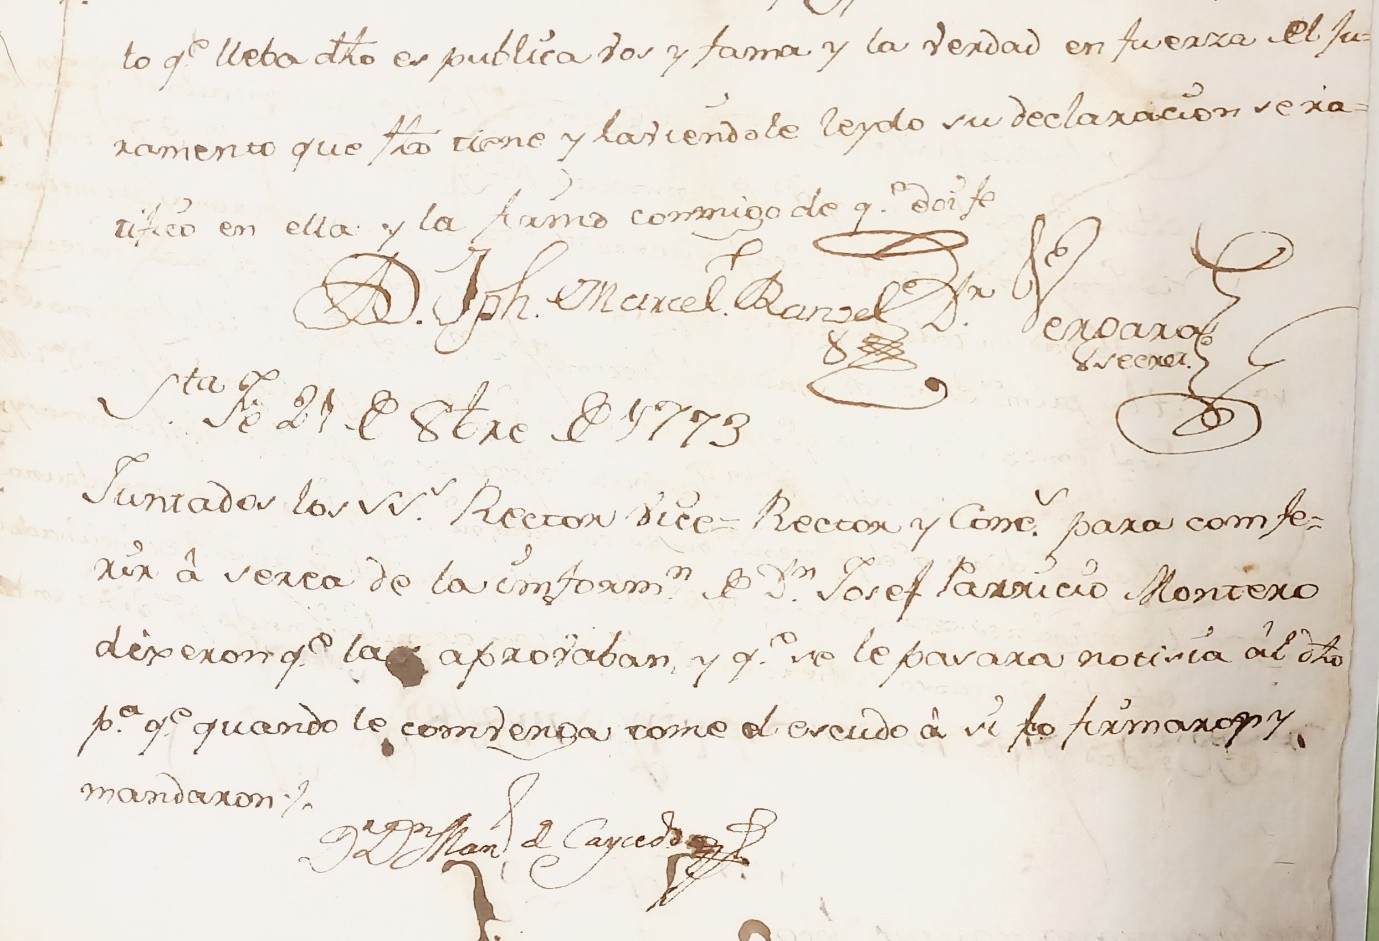 to qe lleba dho es publica vos y fama y la verdad en fuerza del ju=
ramento que fho tiene y laviendole leydo su declaracion se ra=
tifico en ella y la firmo conmigo de q.e doi fe
D. Jph. Marcel. Ranxel Dr. Vergara
Secret.
Sta. Fe 21 de 8bre de 1773
Juntados los SS.s Rector Vice= Rector y Cons.s para comfe=
rir â serca de la imform.n de D.n Josef Parricio Montero
dixeron q.e la aprovaban, y q.e se le pasara notisia âl dho
p.a q.e quando le comvenga tome el escudo â si lo firmaron y
mandaron
Dr. Dn Man.l de Caycedo